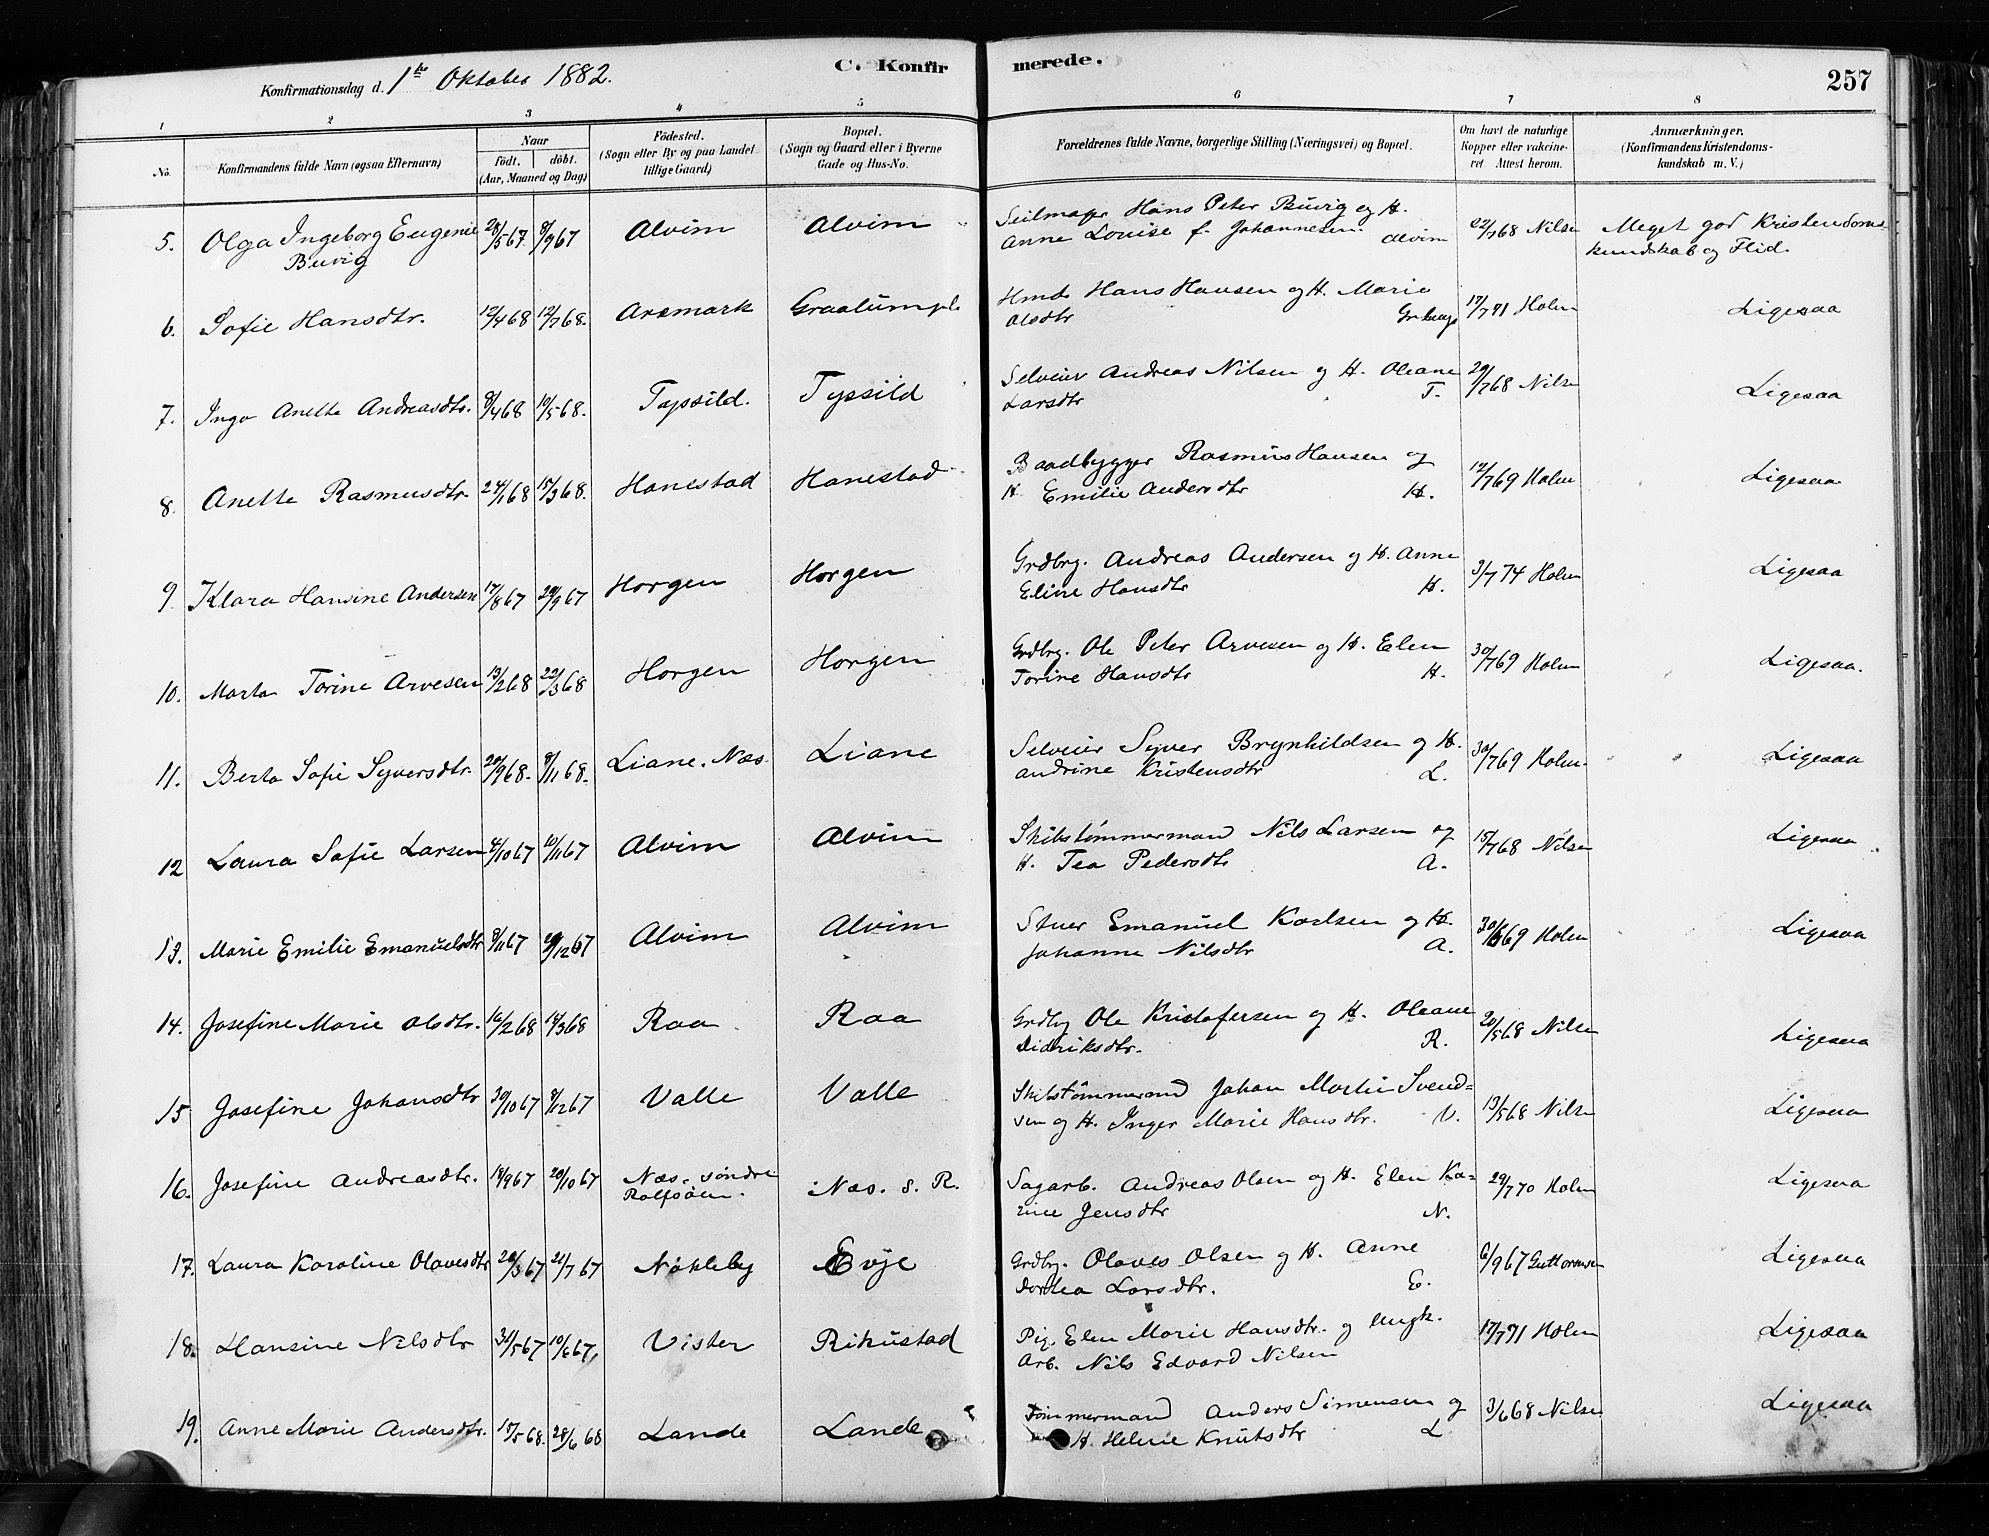 Konfirmationsdag d. 1ste Oktober 1882.
C. Konfirmerede.
257
1 2 3 4 5 6 7 8
No.
Konfirmandens fulde Navn (ogsaa Efternavn)
Naar
födt. döbt.
(Aar, Maaned og Dag)
Födested.
(Sogn eller By og paa Landet
tillige Gaard)
Bopæl.
(Sogn og Gaard eller i Byerne
Gade og Hus-No.
Forældrenes fulde Navne, borgerlige Stilling (Næringsvei) og Bopæl.
Om havt de naturlige
Kopper eller vakcine-
ret. Attest herom.
Anmærkninger.
(Konfirmandens Kristendoms-
kundskab m. V.)
5. Olga Ingeborg Eugenie 28/5 67 8/9 67 Alvim Alvim Seilmager Hans Peter Buvig og H. 22/7 68 Nilsen Meget god Kristendoms-
Buvig Anne Louise f. Johannesen Alvim kundskab og Flid.
6. Sofie Hansdtr. 12/4 68 12/7 68. Aremark Graalumpl. Hmd. Hans Hansen og H. Marie 17/7 71 Holm Ligesaa
Olsdtr
7. Inga Anette Andreasdtr. 8/4 68 10/5 68. Typsild. Typsild Selveier Andreas Nilsen og H. Oleane 29/7 68 Nilsen Ligesaa
Larsdtr T.
8. Anette Rasmusdtr. 24/1 68 15/3 68. Hanestad Hanestad Baadbygger Rasmus Hansen og 12/7 69 Holm Ligesaa
H. Emilie Andersdtr H.
9. Klara Hansine Andersen 17/8 67 29/9 67 Horgen Horgen Grdbrg. Andreas Andersen og H. Anne 3/7 74 Holm Ligesaa
Eline Hansdtr H.
10. Marta Torine Arvesen 13/2 68 22/3 68 Horgen Horgen Grdbrg. Ole Peter Arvesen og H. Elen 30/7 69 Holm Ligesaa.
Torine Hansdtr H.
11. Berta Sofie Syversdtr. 20/9 68. 8/11 68. Liane. Næs. Liane Selveier Syver Brynhildsen og H. 30/7 69 Holm. Ligesaa
Andrine Kristensdtr L.
12 Laura Sofie Larsen 4/10 67 10/11 67 Alvim Alvim Skibstömmermand Nils Larsen og 15/7 68 Nilsen Ligesaa
H. Tea Pedersdtr A.
13. Marie Emilie Emanuelsdtr 8/11 67 /12 67 Alvim Alvim Stuer Emanuel Karlsen og H. 30/6 69 Holm Ligesaa
Johanne Nilsdtr A.
14. Josefine Marie Olsdtr. 16/2 68 14/3 68 Raa Raa Grdbg Ole Kristofersen og H. Oleane 20/5 68 Nilsen Ligesaa
Didriksdtr. R.
15 Josefine Johansdtr 30/10 67 8/12 67 Valle Valle Skibstömmermand Johan Martin Svend- 13/5 68 Nilsen Ligesaa
sen og H. Inger Marie Hansdtr. V.
16. Josefine Andreasdtr. 14/9 67 20/10 67 Næs. söndre Næs. s. R. Sagarb. Andreas Olsen og H. Elen Ka- 29/7 70 Holm Ligesaa
Rolfsöen. rine Jensdtr N.
17. Laura Karoline Olavesdtr 20/3 67 21/7 67 Nökleby Evje Grdbrg. Olaves Olsen og H. Anne 6/9 67 Guttormsen Ligesaa
Dortea Larsdtr. E.
18. Hansine Nilsdtr 31/5 67 10/6 67, Vister Rikustad Pig. Elen Marie Hansdtr. og Ungk. 17/7 71 Holm Ligesaa
Arb. Nils Edvard Nilsen
19. Anne Marie Andersdtr. 17/5 68. 28/6 68 Lande Lande Tömmermand Anders Simensen og 3/6 68 Nilsen Ligesaa
H. Helene Knutsdtr L